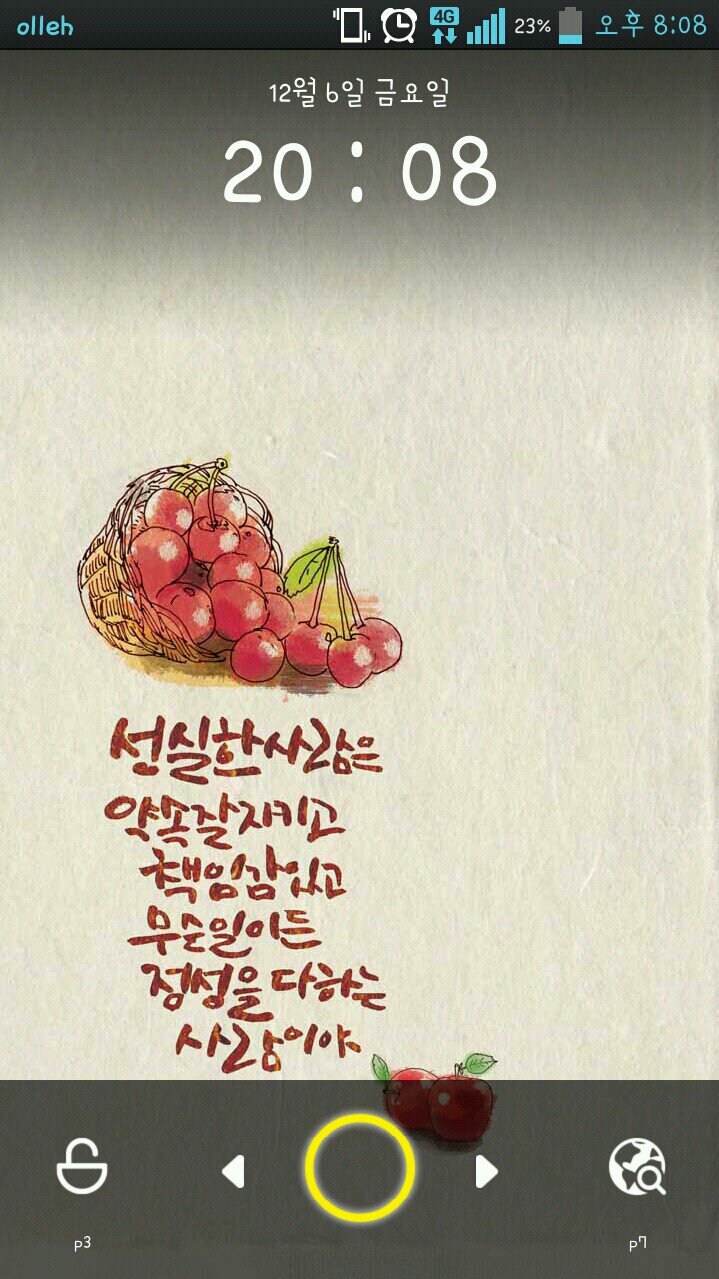 olleh 4G 23% 오후 8:08
12월 6일 금요일
20 : 08
성실한 사람은
약속 잘 지키고
책임감 있고
무슨 일이든
정성을 다하는
사람이야
P3 P7